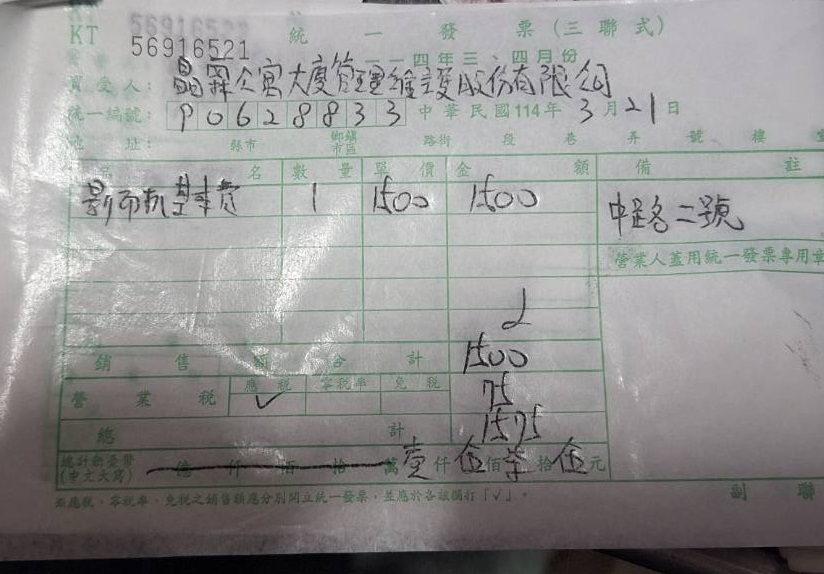 KT 56916521 統一發票(三聯式)
一一四年三、四月份
買受人:晶霖公寓大廈管理維護股份有限公司
統一編號:90628833 中華民國114年3月21日
地址: 縣市 鄉鎮市區 路街 段 巷 弄 號 樓 室
品名 數量 單價 金額 備註
影印机基本費 1 1500 1500 中路二號
營業人蓋用統一發票專用章
銷售額合計 1500
營業稅 應稅 ✓ 零稅率 免稅 75
總計 1575
總計新臺幣(中文大寫) 億 仟 佰 拾 萬 壹仟伍佰柒拾伍元
※應稅、零稅率、免稅之銷售額應分別開立統一發票,並應於各該欄打「✓」。
副聯